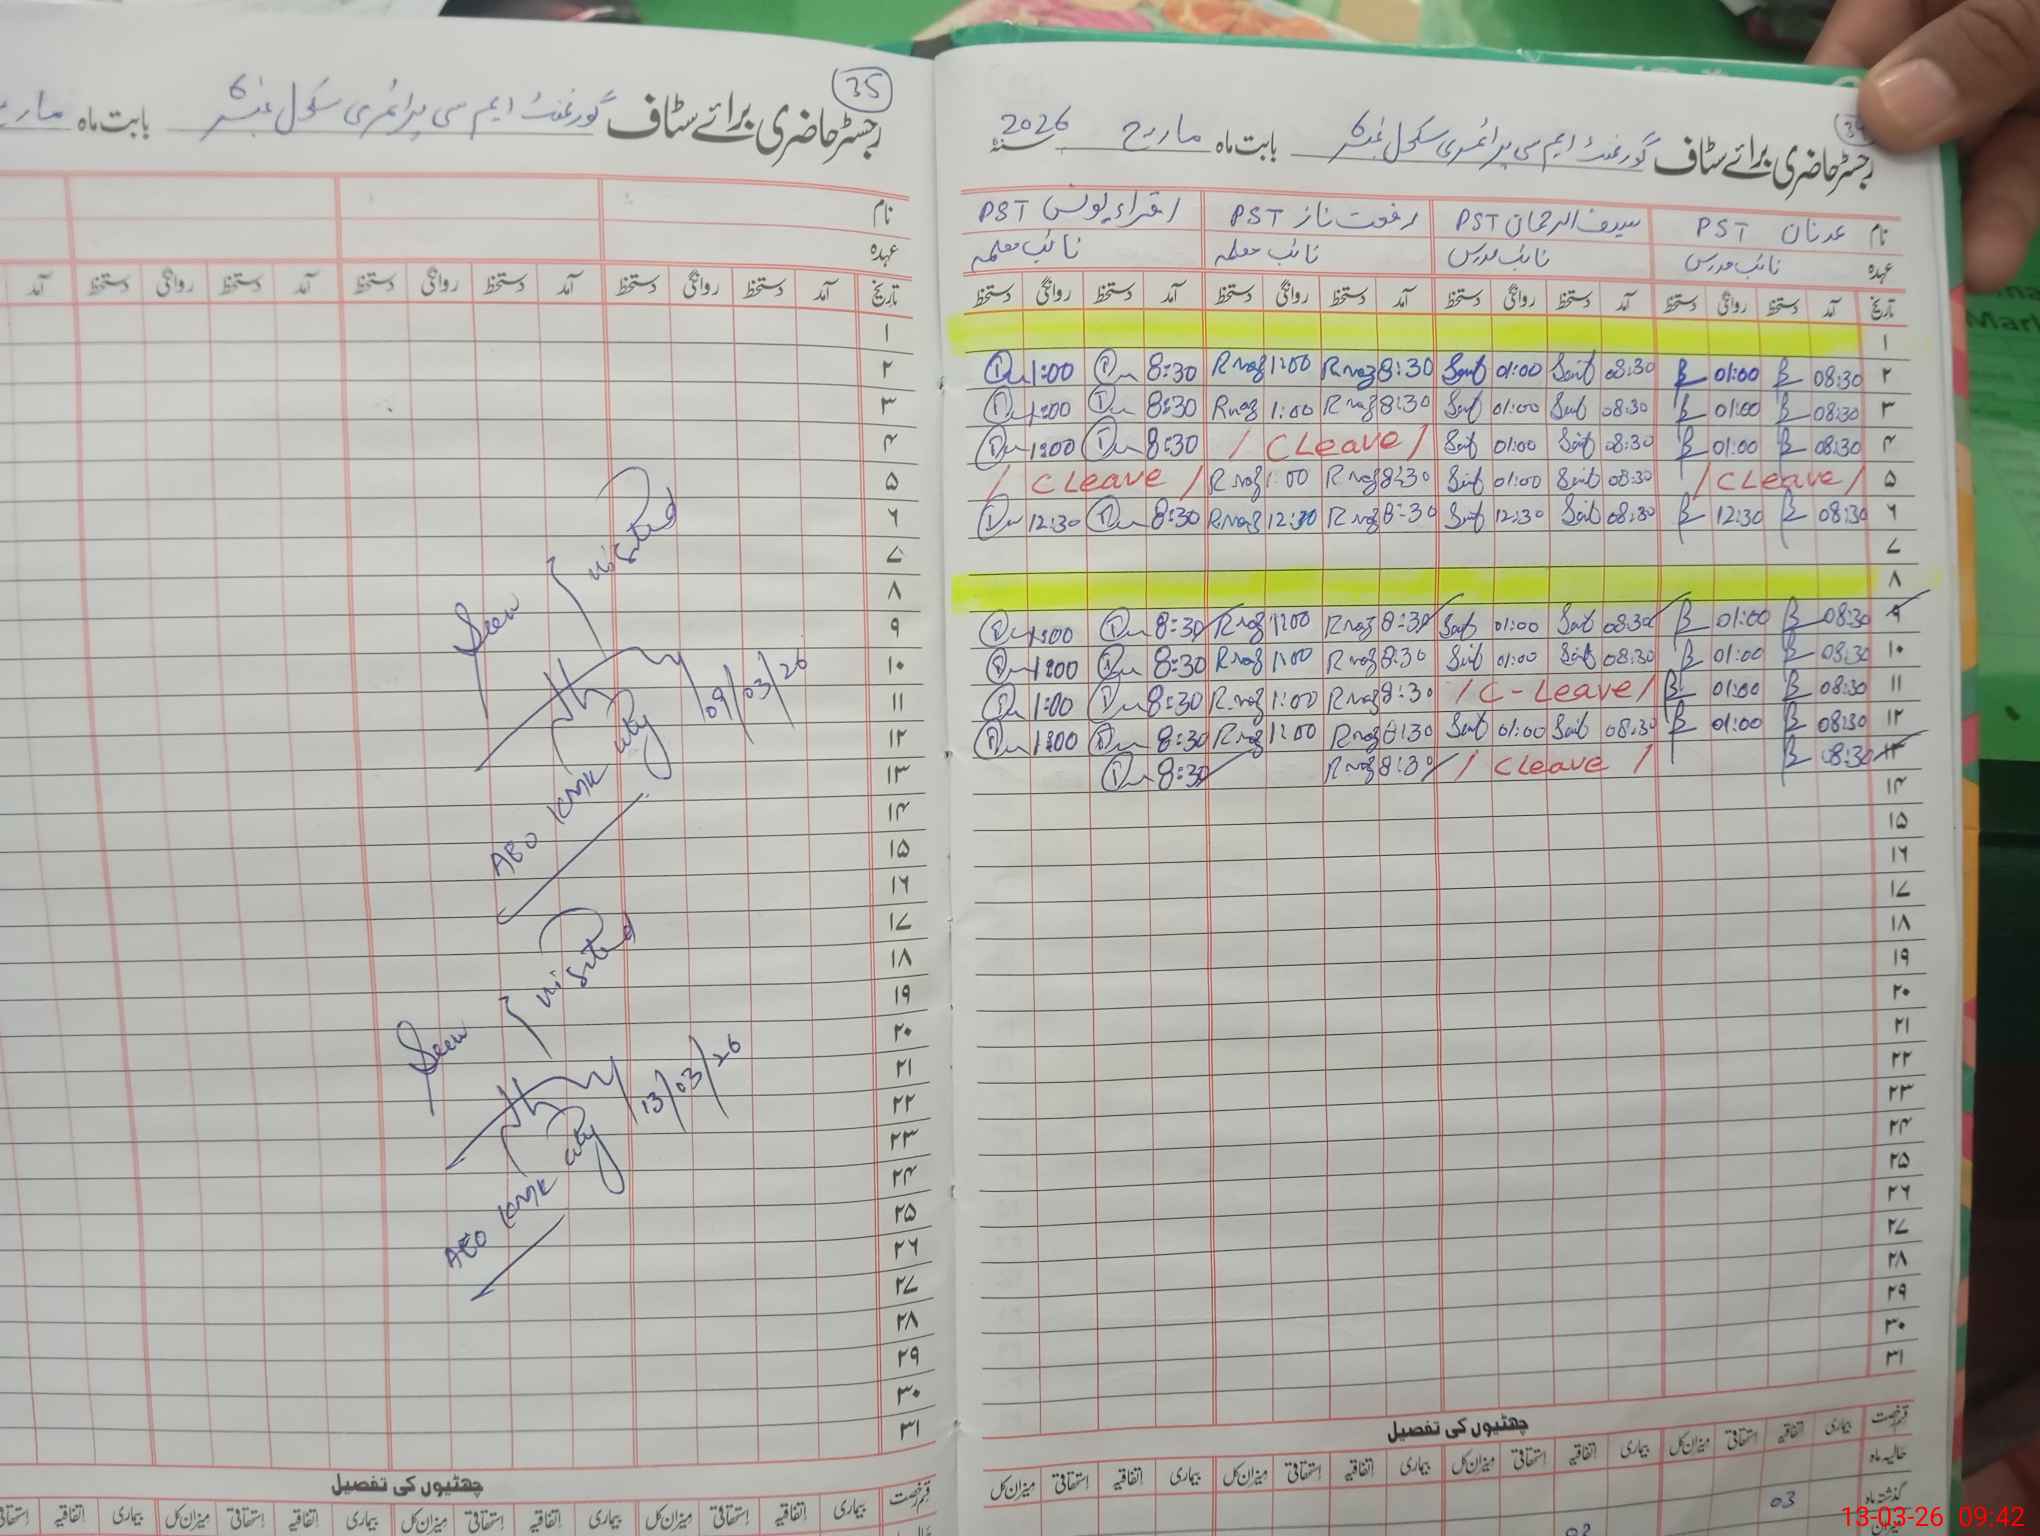 34
رجسٹر حاضری برائے سٹاف گورنمنٹ ایم سی پرائمری سکول نمبر 6 بابت ماہ مارچ سنہ 2026
نام عدنان PST سیف الرحمان PST رفعت ناز PST اقراء یونس PST
عہدہ نائب مدرس نائب مدرس نائب معلمہ نائب معلمہ
تاریخ آمد دستخط روانگی دستخط آمد دستخط روانگی دستخط آمد دستخط روانگی دستخط آمد دستخط روانگی دستخط
۱
۲ 08:30 01:00 08:30 Saif 01:00 Saif 8:30 Rnaz 1:00 Rnaz 8:30 1:00
۳ 08:30 01:00 08:30 Saif 01:00 Saif 8:30 Rnaz 1:00 Rnaz 8:30 1:00
۴ 08:30 01:00 08:30 Saif 01:00 Saif / CLeave / 8:30 1:00
۵ / CLeave / 08:30 Saif 01:00 Saif 8:30 Rnaz 1:00 Rnaz / CLeave /
۶ 08:30 12:30 08:30 Saif 12:30 Saif 8:30 Rnaz 12:30 Rnaz 8:30 12:30
۷
۸
۹ 08:30 01:00 08:30 Saif 01:00 Saif 8:30 Rnaz 1:00 Rnaz 8:30 1:00
۱۰ 08:30 01:00 08:30 Saif 01:00 Saif 8:30 Rnaz 1:00 Rnaz 8:30 1:00
۱۱ 08:30 01:00 / C-Leave / 8:30 Rnaz 1:00 Rnaz 8:30 1:00
۱۲ 08:30 01:00 08:30 Saif 01:00 Saif 8:30 Rnaz 1:00 Rnaz 8:30 1:00
۱۳ 08:30 / CLeave / 8:30 Rnaz 8:30
۱۴
۱۵
۱۶
۱۷
۱۸
۱۹
۲۰
۲۱
۲۲
۲۳
۲۴
۲۵
۲۶
۲۷
۲۸
۲۹
۳۰
۳۱
چھٹیوں کی تفصیل
قسم رخصت بیماری اتفاقیہ استحقاقی میزان کل بیماری اتفاقیہ استحقاقی میزان کل بیماری اتفاقیہ استحقاقی میزان کل بیماری اتفاقیہ استحقاقی میزان کل
حالیہ ماہ
گذشتہ ماہ 03
02
35
رجسٹر حاضری برائے سٹاف گورنمنٹ ایم سی پرائمری سکول نمبر 6 بابت ماہ مارچ
نام
عہدہ
تاریخ آمد دستخط روانگی دستخط آمد دستخط روانگی دستخط آمد دستخط روانگی دستخط آمد
۱
۲
۳
۴
۵
۶
۷
۸
۹
۱۰
۱۱
۱۲
۱۳
۱۴
۱۵
۱۶
۱۷
۱۸
۱۹
۲۰
۲۱
۲۲
۲۳
۲۴
۲۵
۲۶
۲۷
۲۸
۲۹
۳۰
۳۱
Seen visited
09/03/26
AEO KMK City
Seen visited
13/03/26
AEO KMK City
چھٹیوں کی تفصیل
قسم رخصت بیماری اتفاقیہ استحقاقی میزان کل بیماری اتفاقیہ استحقاقی میزان کل بیماری اتفاقیہ استحقاقی میزان کل بیماری اتفاقیہ استحقاقی
Mark
13-03-26 09:42